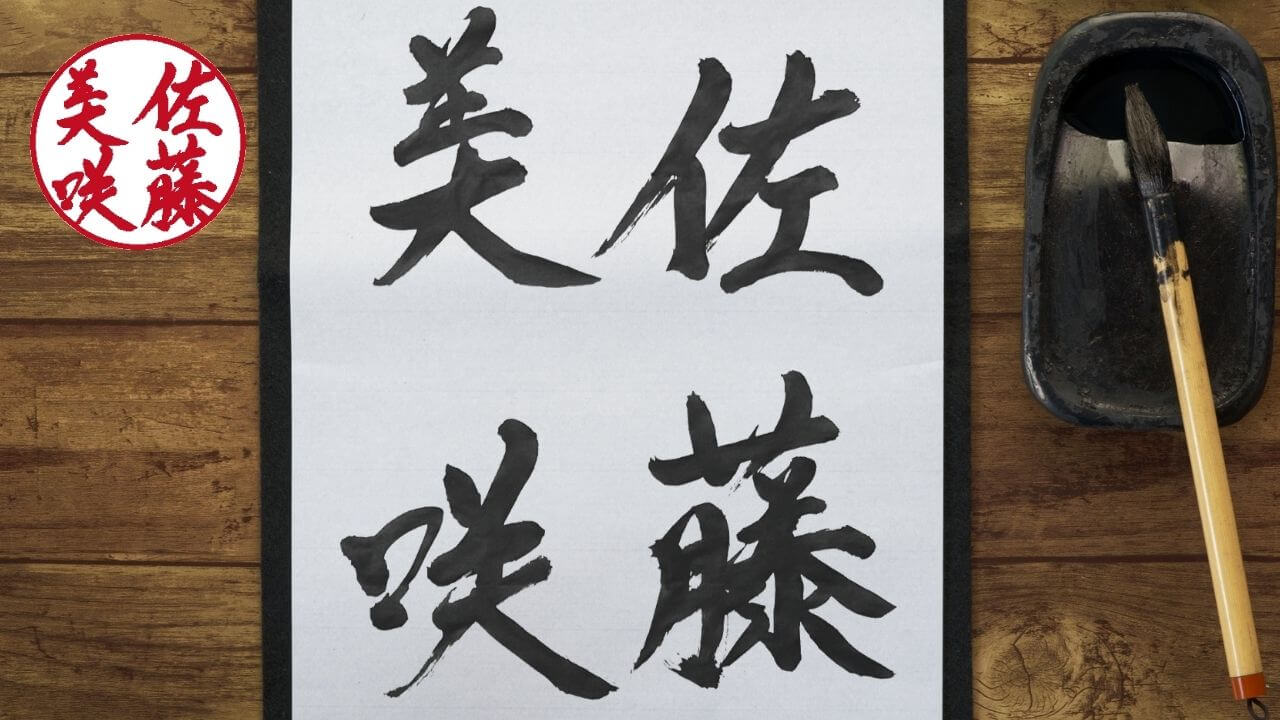 佐藤
美咲
佐藤
美咲